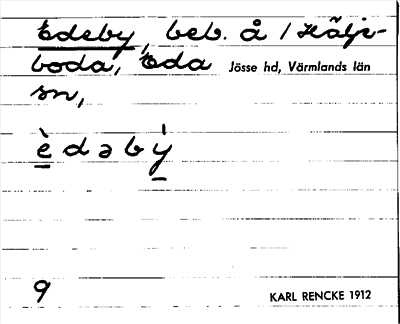 Edeby, beb. å 1 Hälje-
boda, Eda Jösse hd, Värmlands län
sn,
è d ə b ý
9
KARL RENCKE 1912